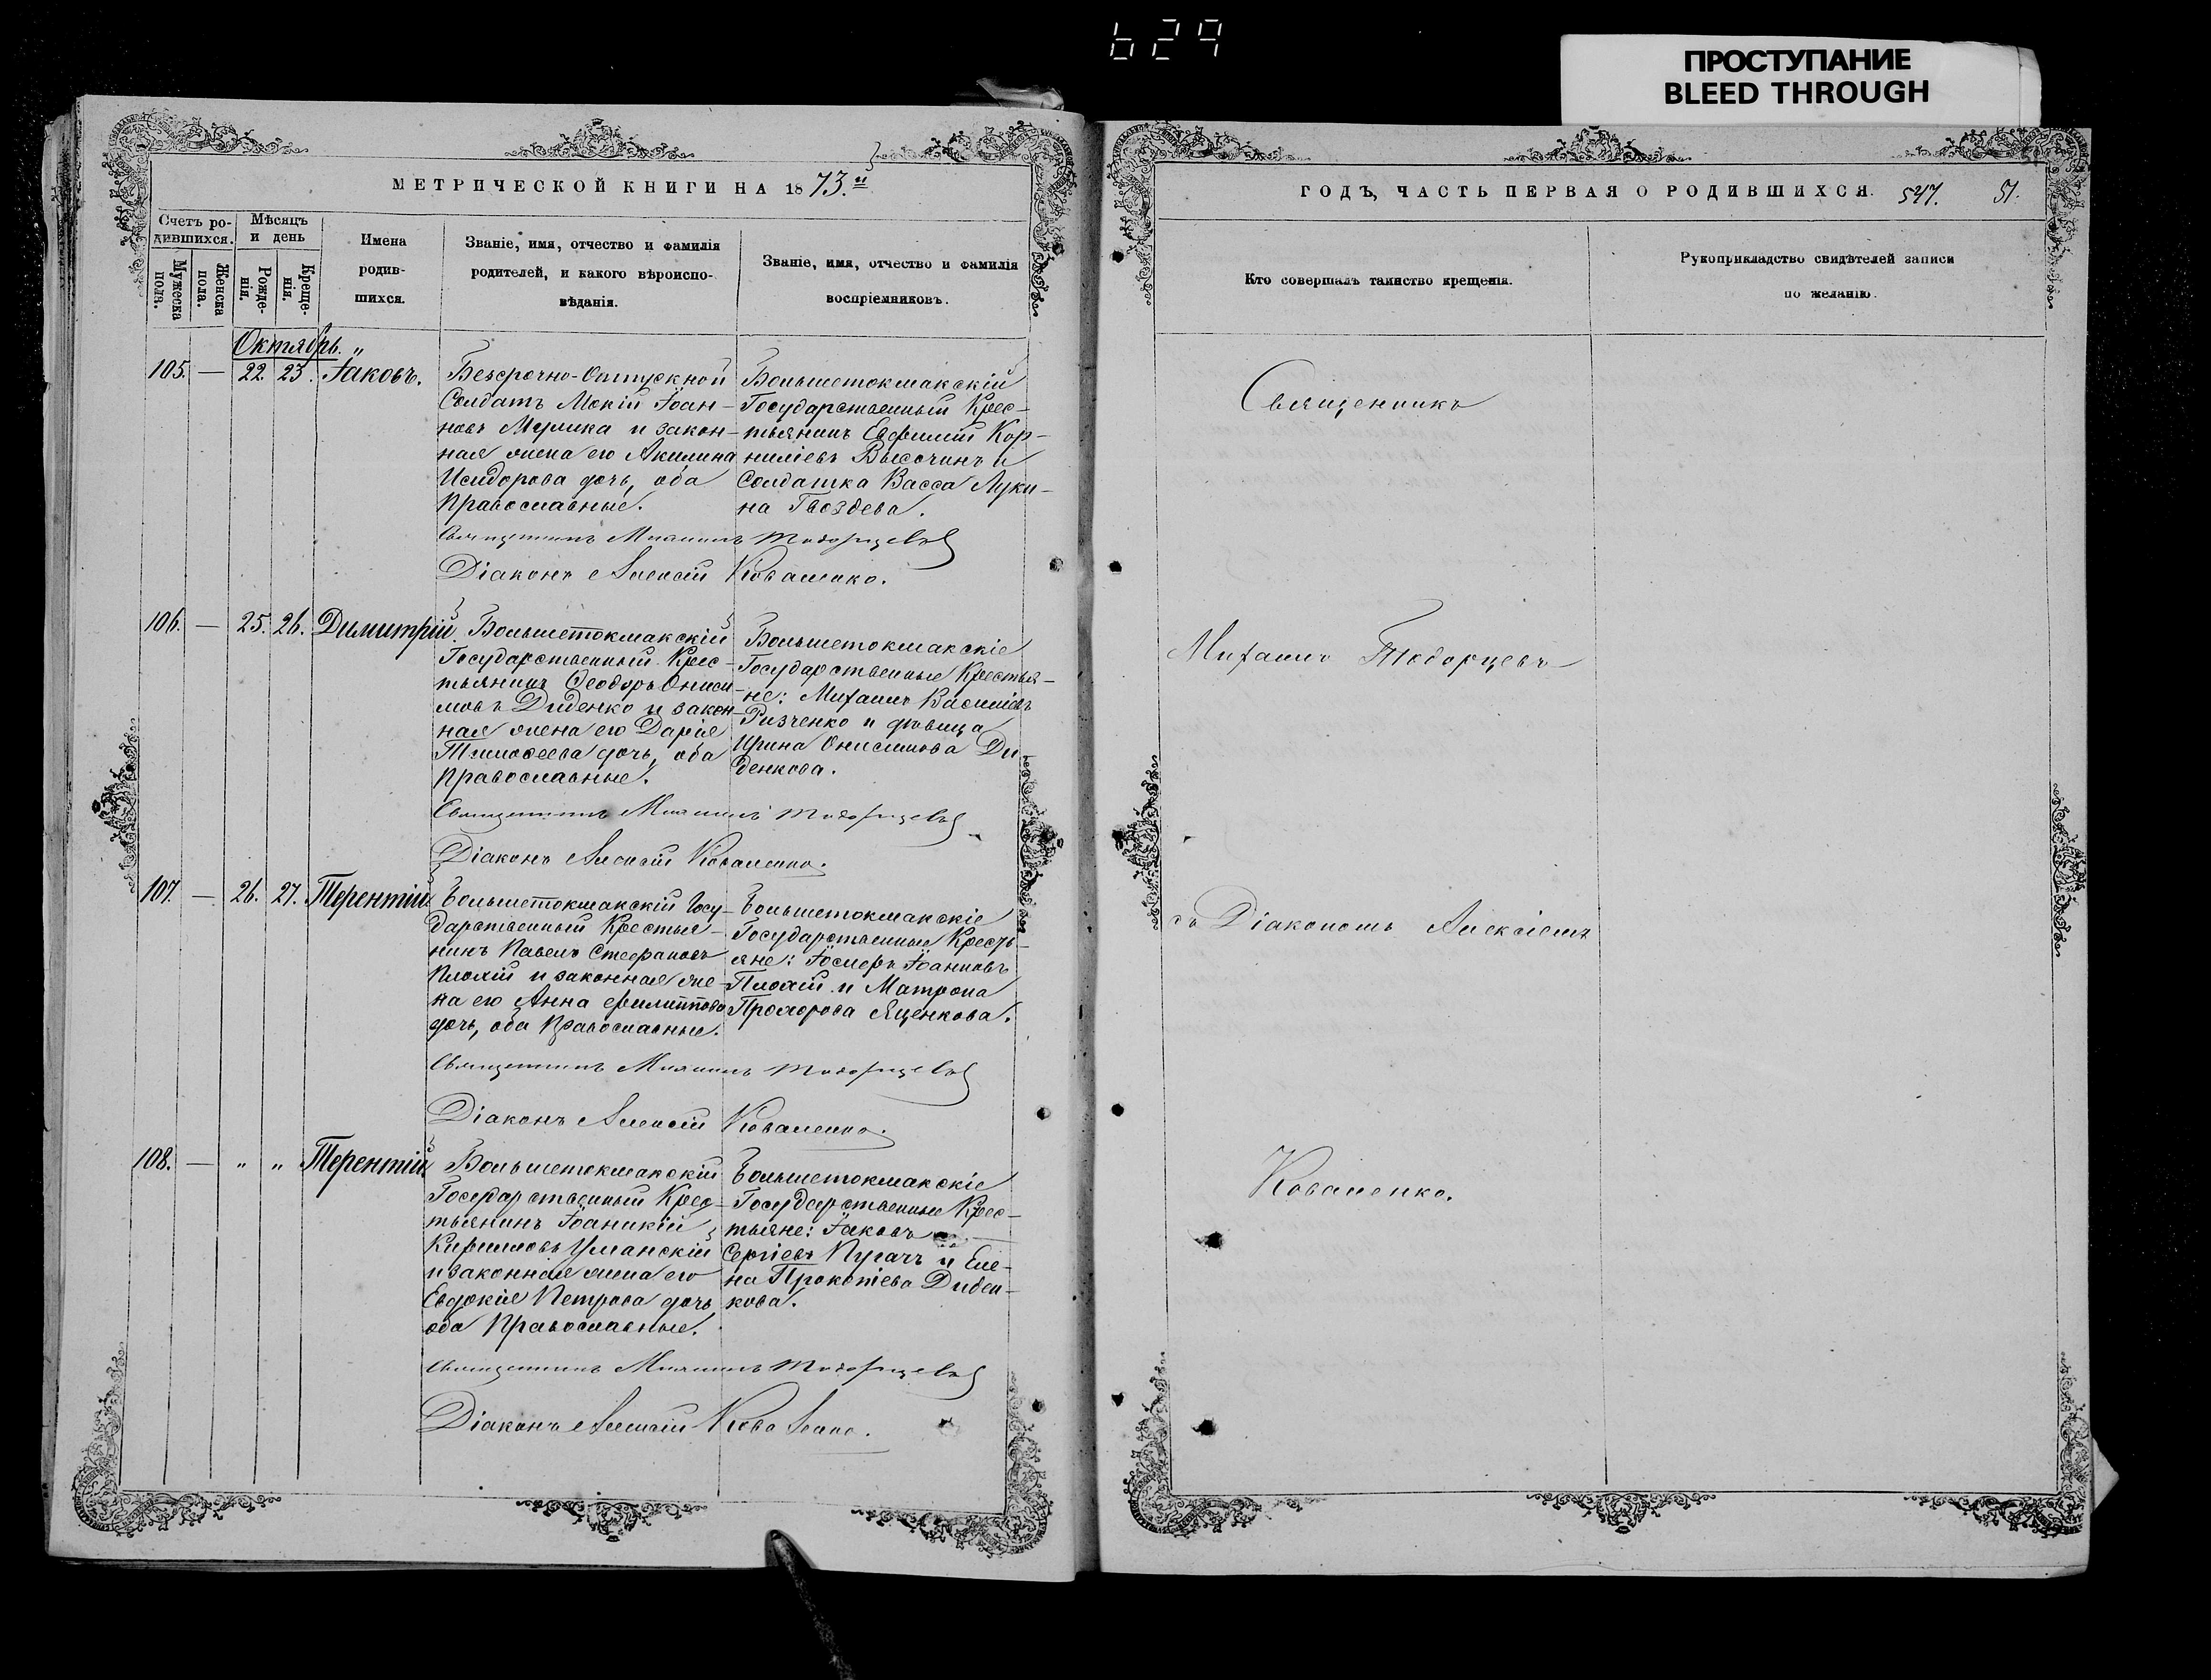 629
ПРОСТУПАНИЕ
BLEED THROUGH
МЕТРИЧЕСКОЙ КНИГИ НА 1873.й
Счетъ ро-
дившихся.
Мѣсяцъ
и день
Мужеска
пола.
Женска
пола.
Рожде-
нія.
Креще-
нія.
Имена
родив-
шихся.
Званіе, имя, отчество и фамилія
родителей, и какого вѣроиспо-
вѣданія.
Званіе, имя, отчество и фамилія
воспріемниковъ.
Октябрь.
105. — 22. 23. Іаковъ.
Безсрочно-Отпускной
Солдатъ Мокій Іоан-
новъ Мурмка и закон-
ная жена его Акилина
Исидорова дочь, оба
Православные.
Большетокмакскій
Государственный Крес-
тьянинъ Евфимій Кор-
ниліевъ Высочинъ и
Солдатка Васса Луки-
на Гвоздева.
Священникъ Михаилъ Тодорцевъ
Діаконъ Алексій Коваленко.
106. — 25. 26. Димитрій.
Большетокмакскій
Государственный Крес-
тьянинъ Ѳеодоръ Ониси-
мовъ Диденко и закон-
ная жена его Дарія
Тимоѳеева дочь, оба
Православные.
Большетокмакскіе
Государственные Крестья-
не: Михаилъ Василіевъ
Ризченко и дѣвица
Ирина Онисимова Ди-
денкова.
Священникъ Михаилъ Тодорцевъ
Діаконъ Алексій Коваленко.
107. — 26. 27. Терентій.
Большетокмакскій Госу-
дарственный Крестья-
нинъ Павелъ Стефановъ
Плохій и законная же-
на его Анна Филиппова
дочь, оба Православные.
Большетокмакскіе
Государственные Кресть-
яне: Іосифъ Іоанновъ
Плохій и Матрона
Прохорова Яценкова.
Священникъ Михаилъ Тодорцевъ
Діаконъ Алексій Коваленко.
108. — " " Терентій.
Большетокмакскій
Государственный Крес-
тьянинъ Іоаникій
Кирилловъ Уманскій
и законная жена его
Евдокія Петрова дочь
оба Православные.
Большетокмакскіе
Государственные Крес-
тьяне: Іаковъ
Сергіевъ Пугачъ и Еле-
на Прокопіева Диден-
кова.
Священникъ Михаилъ Тодорцевъ
Діаконъ Алексій Коваленко.
ГОДЪ, ЧАСТЬ ПЕРВАЯ О РОДИВШИХСЯ. 547. 51.
Кто совершалъ таинство крещенія.
Рукоприкладство свидѣтелей записи
по желанію.
Священникъ
Михаилъ Тодорцевъ
съ Діакономъ Алексіемъ
Коваленко.